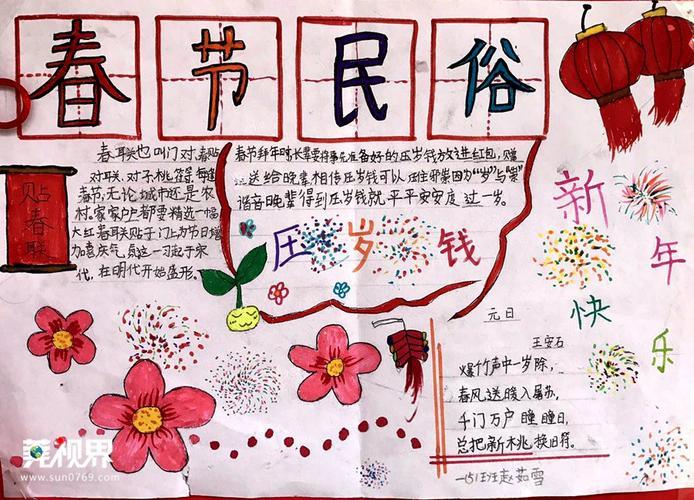 春节民俗
春联也叫门对、春贴
对联、对子、桃符、每逢
春节,无论城市还是农
村。家家户户都要精选一幅
大红春联贴于门上为节日增
加喜庆气氛这一习起于宋
代,在明代开始盛形。
贴春联
春节拜年时长辈要将事先准备好的压岁钱放进红包,
送给晚辈相传压岁钱可以压住邪祟因为“岁”与“祟”
谐音晚辈得到压岁钱就平平安安度过一岁。
压岁钱
新年快乐
元日
王安石
爆竹声中一岁除,
春风送暖入屠苏,
千门万户瞳瞳日,
总把新桃换旧符。
一(5)班赵茹雪
莞视界
www.sun0769.com